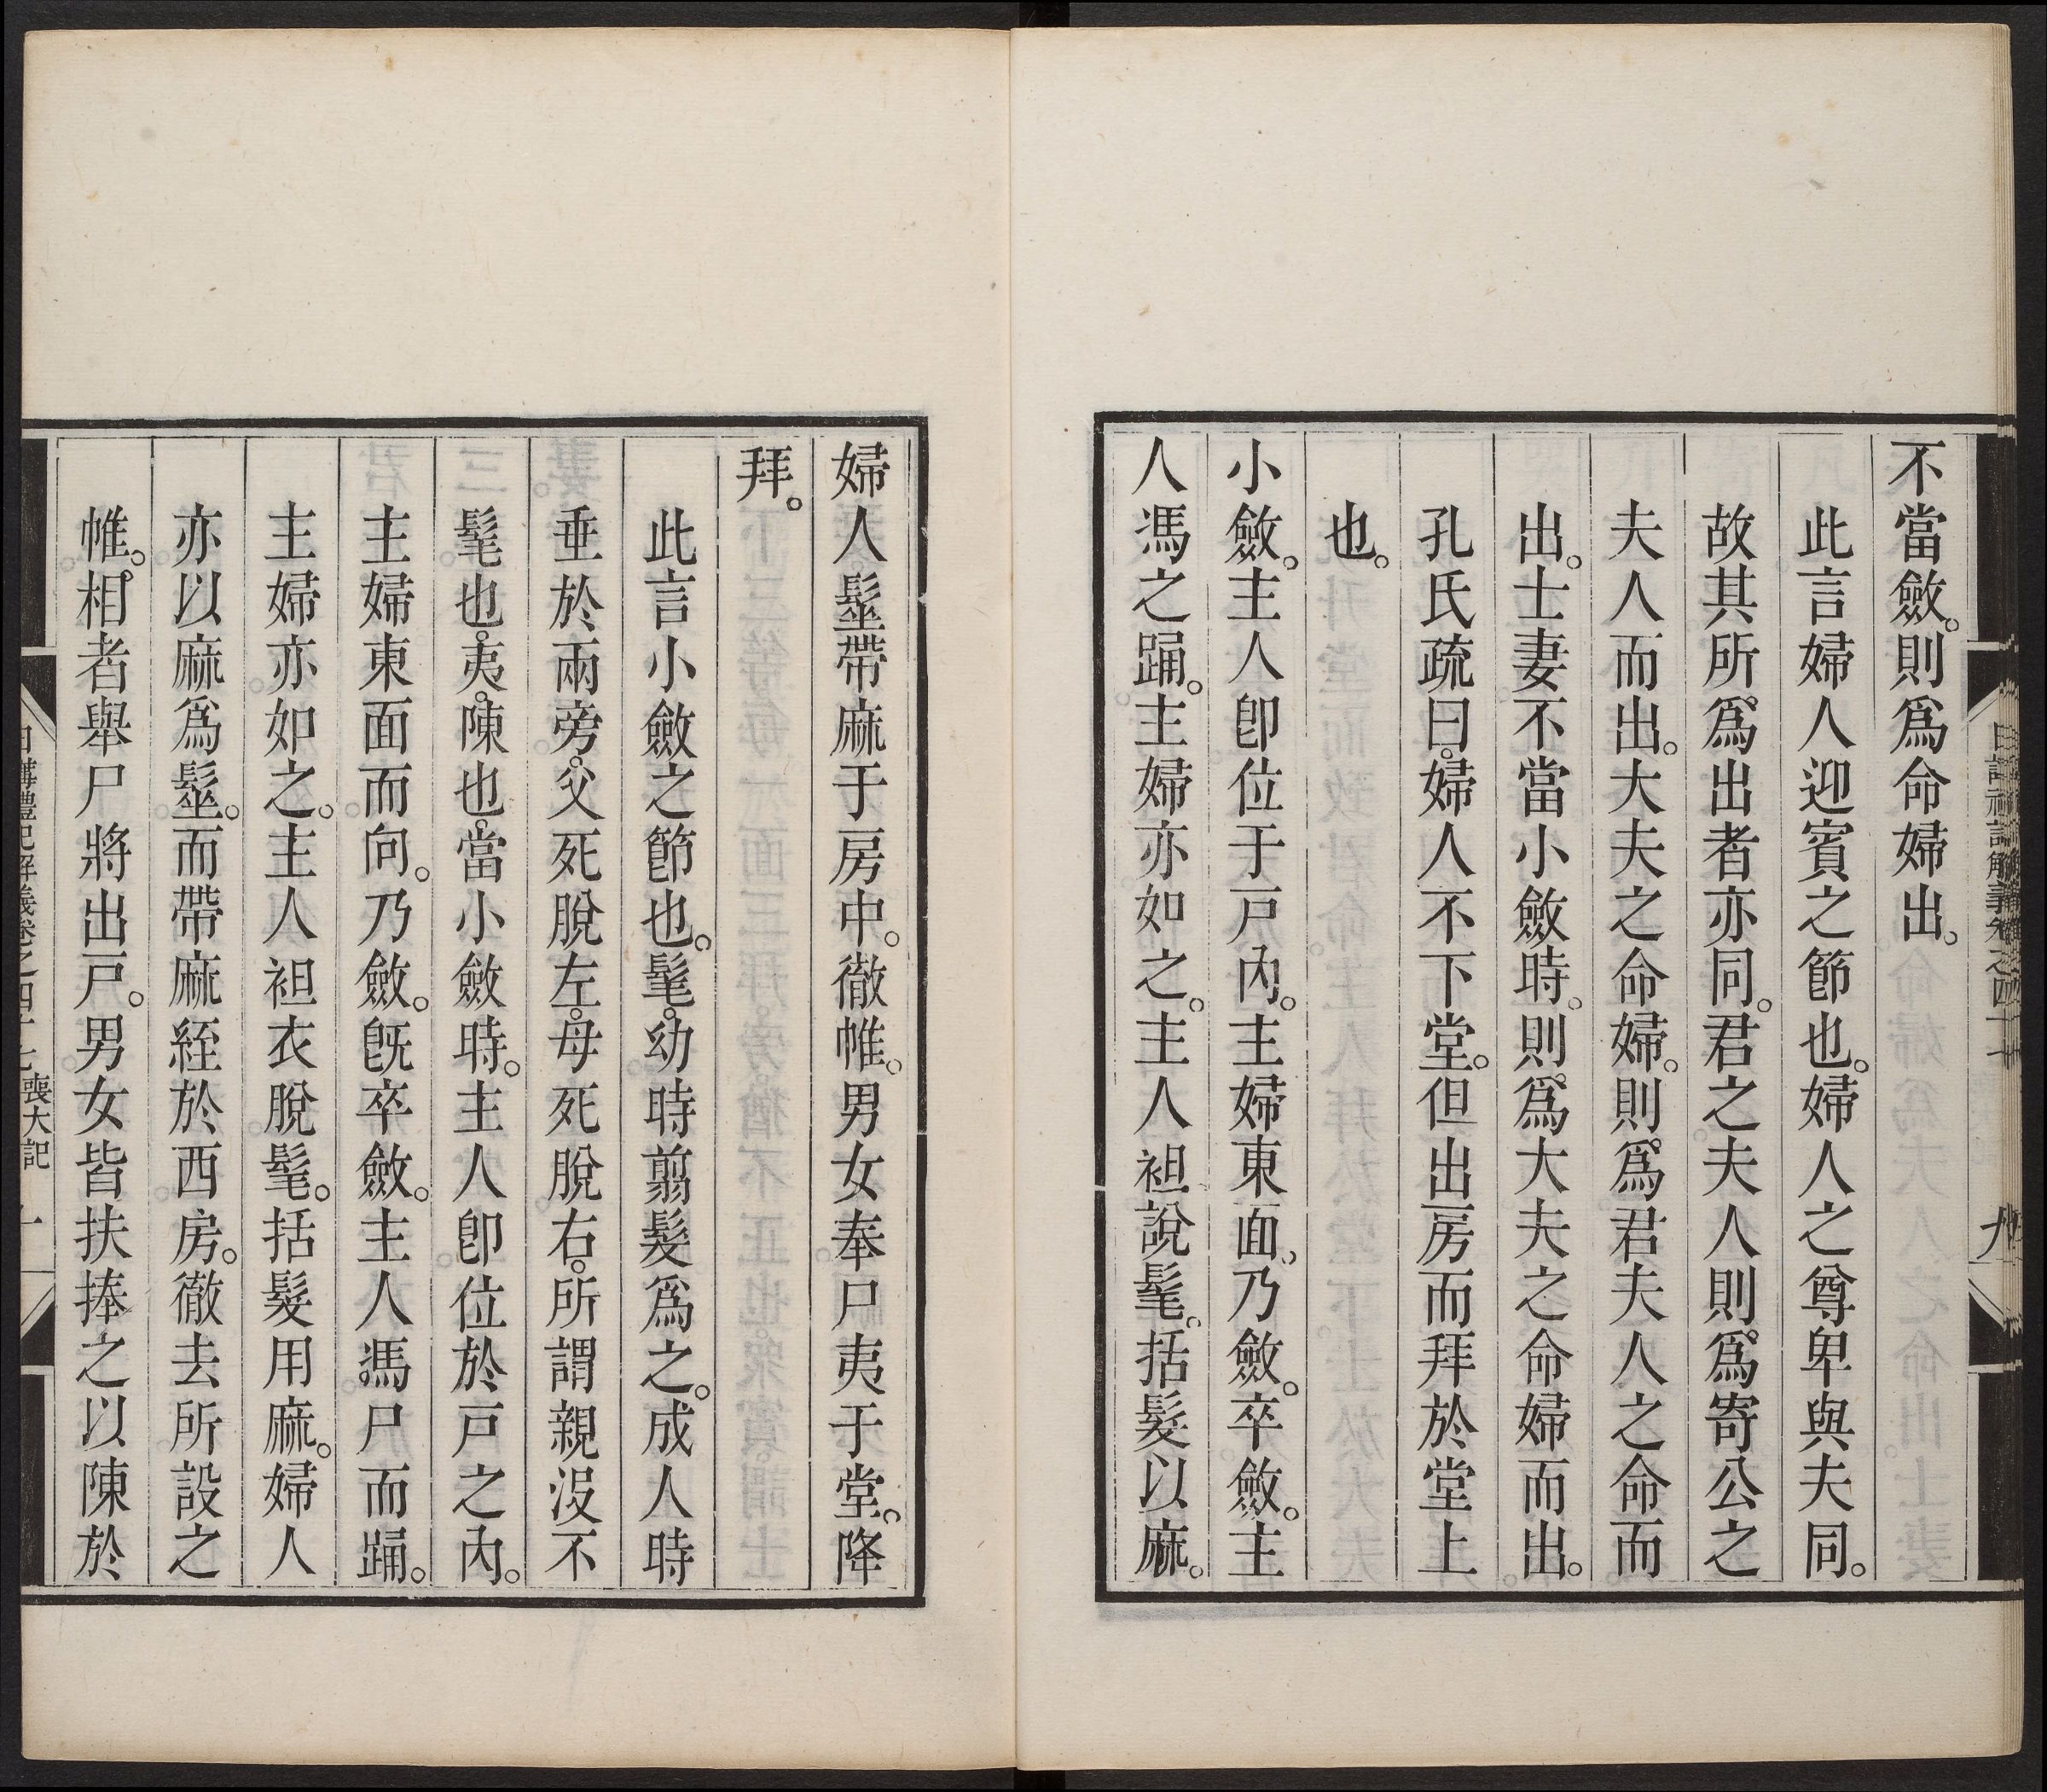 不當斂。則爲命婦出。
此言婦人迎賓之節也。婦人之尊卑與夫同。
故其所爲出者亦同。君之夫人則爲寄公之
夫人而出。大夫之命婦。則爲君夫人之命而
出。士妻不當小斂時。則爲大夫之命婦而出。
孔氏疏曰。婦人不下堂。但出房而拜於堂上
也。
小斂。主人卽位于戸內。主婦東面。乃斂。卒斂。主
人馮之踊。主婦亦如之。主人袒說髦。括髮以麻。
婦人髽帶麻于房中。徹帷。男女奉尸夷于堂。降
拜。
此言小斂之節也。髦。幼時翦髮爲之。成人時
垂於兩旁。父死脫左。母死脫右。所謂親沒不
髦也。夷。陳也。當小斂時。主人卽位於戸之內。
主婦東面而向。乃斂。旣卒斂。主人馮尸而踊。
主婦亦如之。主人袒衣脫髦。括髮用麻。婦人
亦以麻爲髽。而帶麻絰於西房。徹去所設之
帷。相者舉尸將出戸。男女皆扶捧之以陳於
日講禮記解義卷之四十七 喪大記